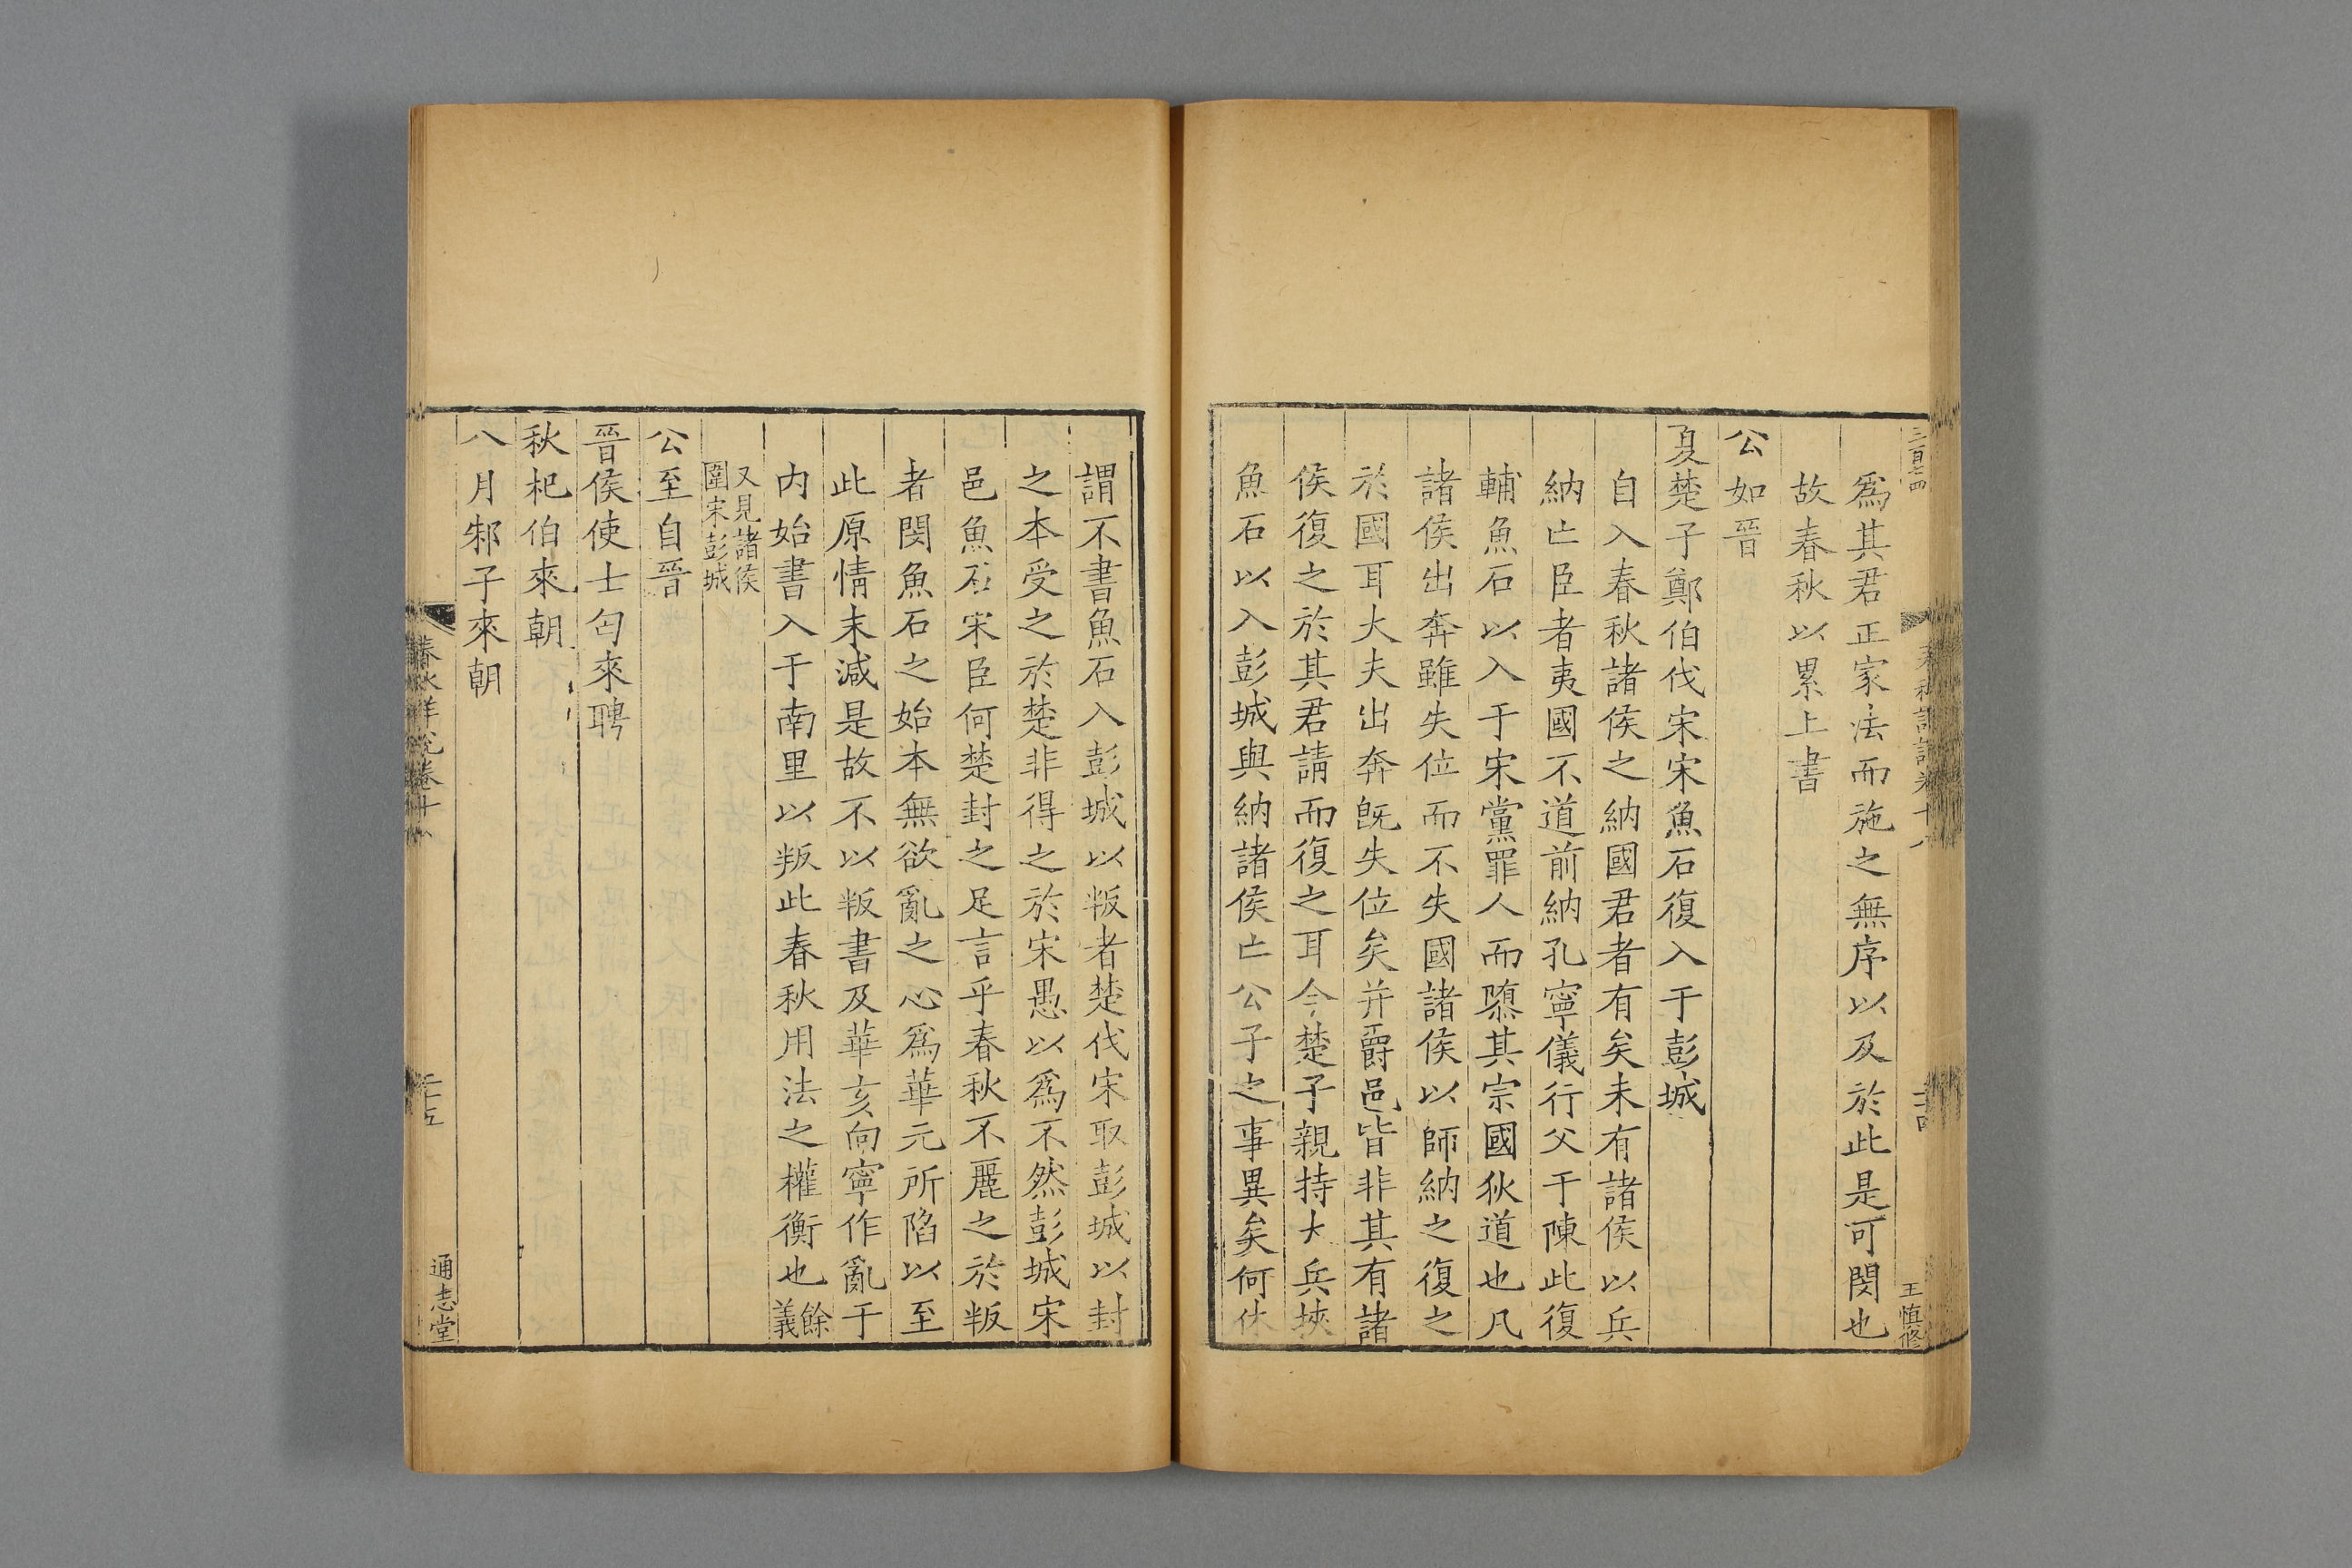 爲其君正家法而施之無序以及於此是可閔也
故春秋以累上書
公如晉
夏楚子鄭伯伐宋宋魚石復入于彭城
自入春秋諸侯之納國君者有矣未有諸侯以兵
納亡臣者夷國不道前納孔寧儀行父于陳此復
輔魚石以入于宋黨罪人而隳其宗國狄道也凡
諸侯出奔雖失位而不失國諸侯以師納之復之
於國耳大夫出奔旣失位矣并爵邑皆非其有諸
侯復之於其君請而復之耳今楚子親持大兵挾
魚石以入彭城與納諸侯亡公子之事異矣何休
謂不書魚石入彭城以叛者楚伐宋取彭城以封
之本受之於楚非得之於宋愚以爲不然彭城宋
邑魚石宋臣何楚封之足言乎春秋不麗之於叛
者閔魚石之始本無欲亂之心爲華元所陷以至
此原情末減是故不以叛書及華亥向寧作亂于
内始書入于南里以叛此春秋用法之權衡也餘
義
又見諸侯
圍宋彭城
公至自晉
晉侯使士匄來聘
秋杞伯來朝
八月邾子來朝
春秋詳說卷十八
二十五
通志堂
三百七四
二十四
王慎修